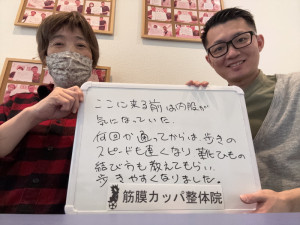 ここに来る前は内股が
気になっていた.
何回か通ってからは歩きの
スピードも速くなり 靴ひもの
結び方も教えてもらい.
歩きやすくなりました。
筋膜カッパ整体院